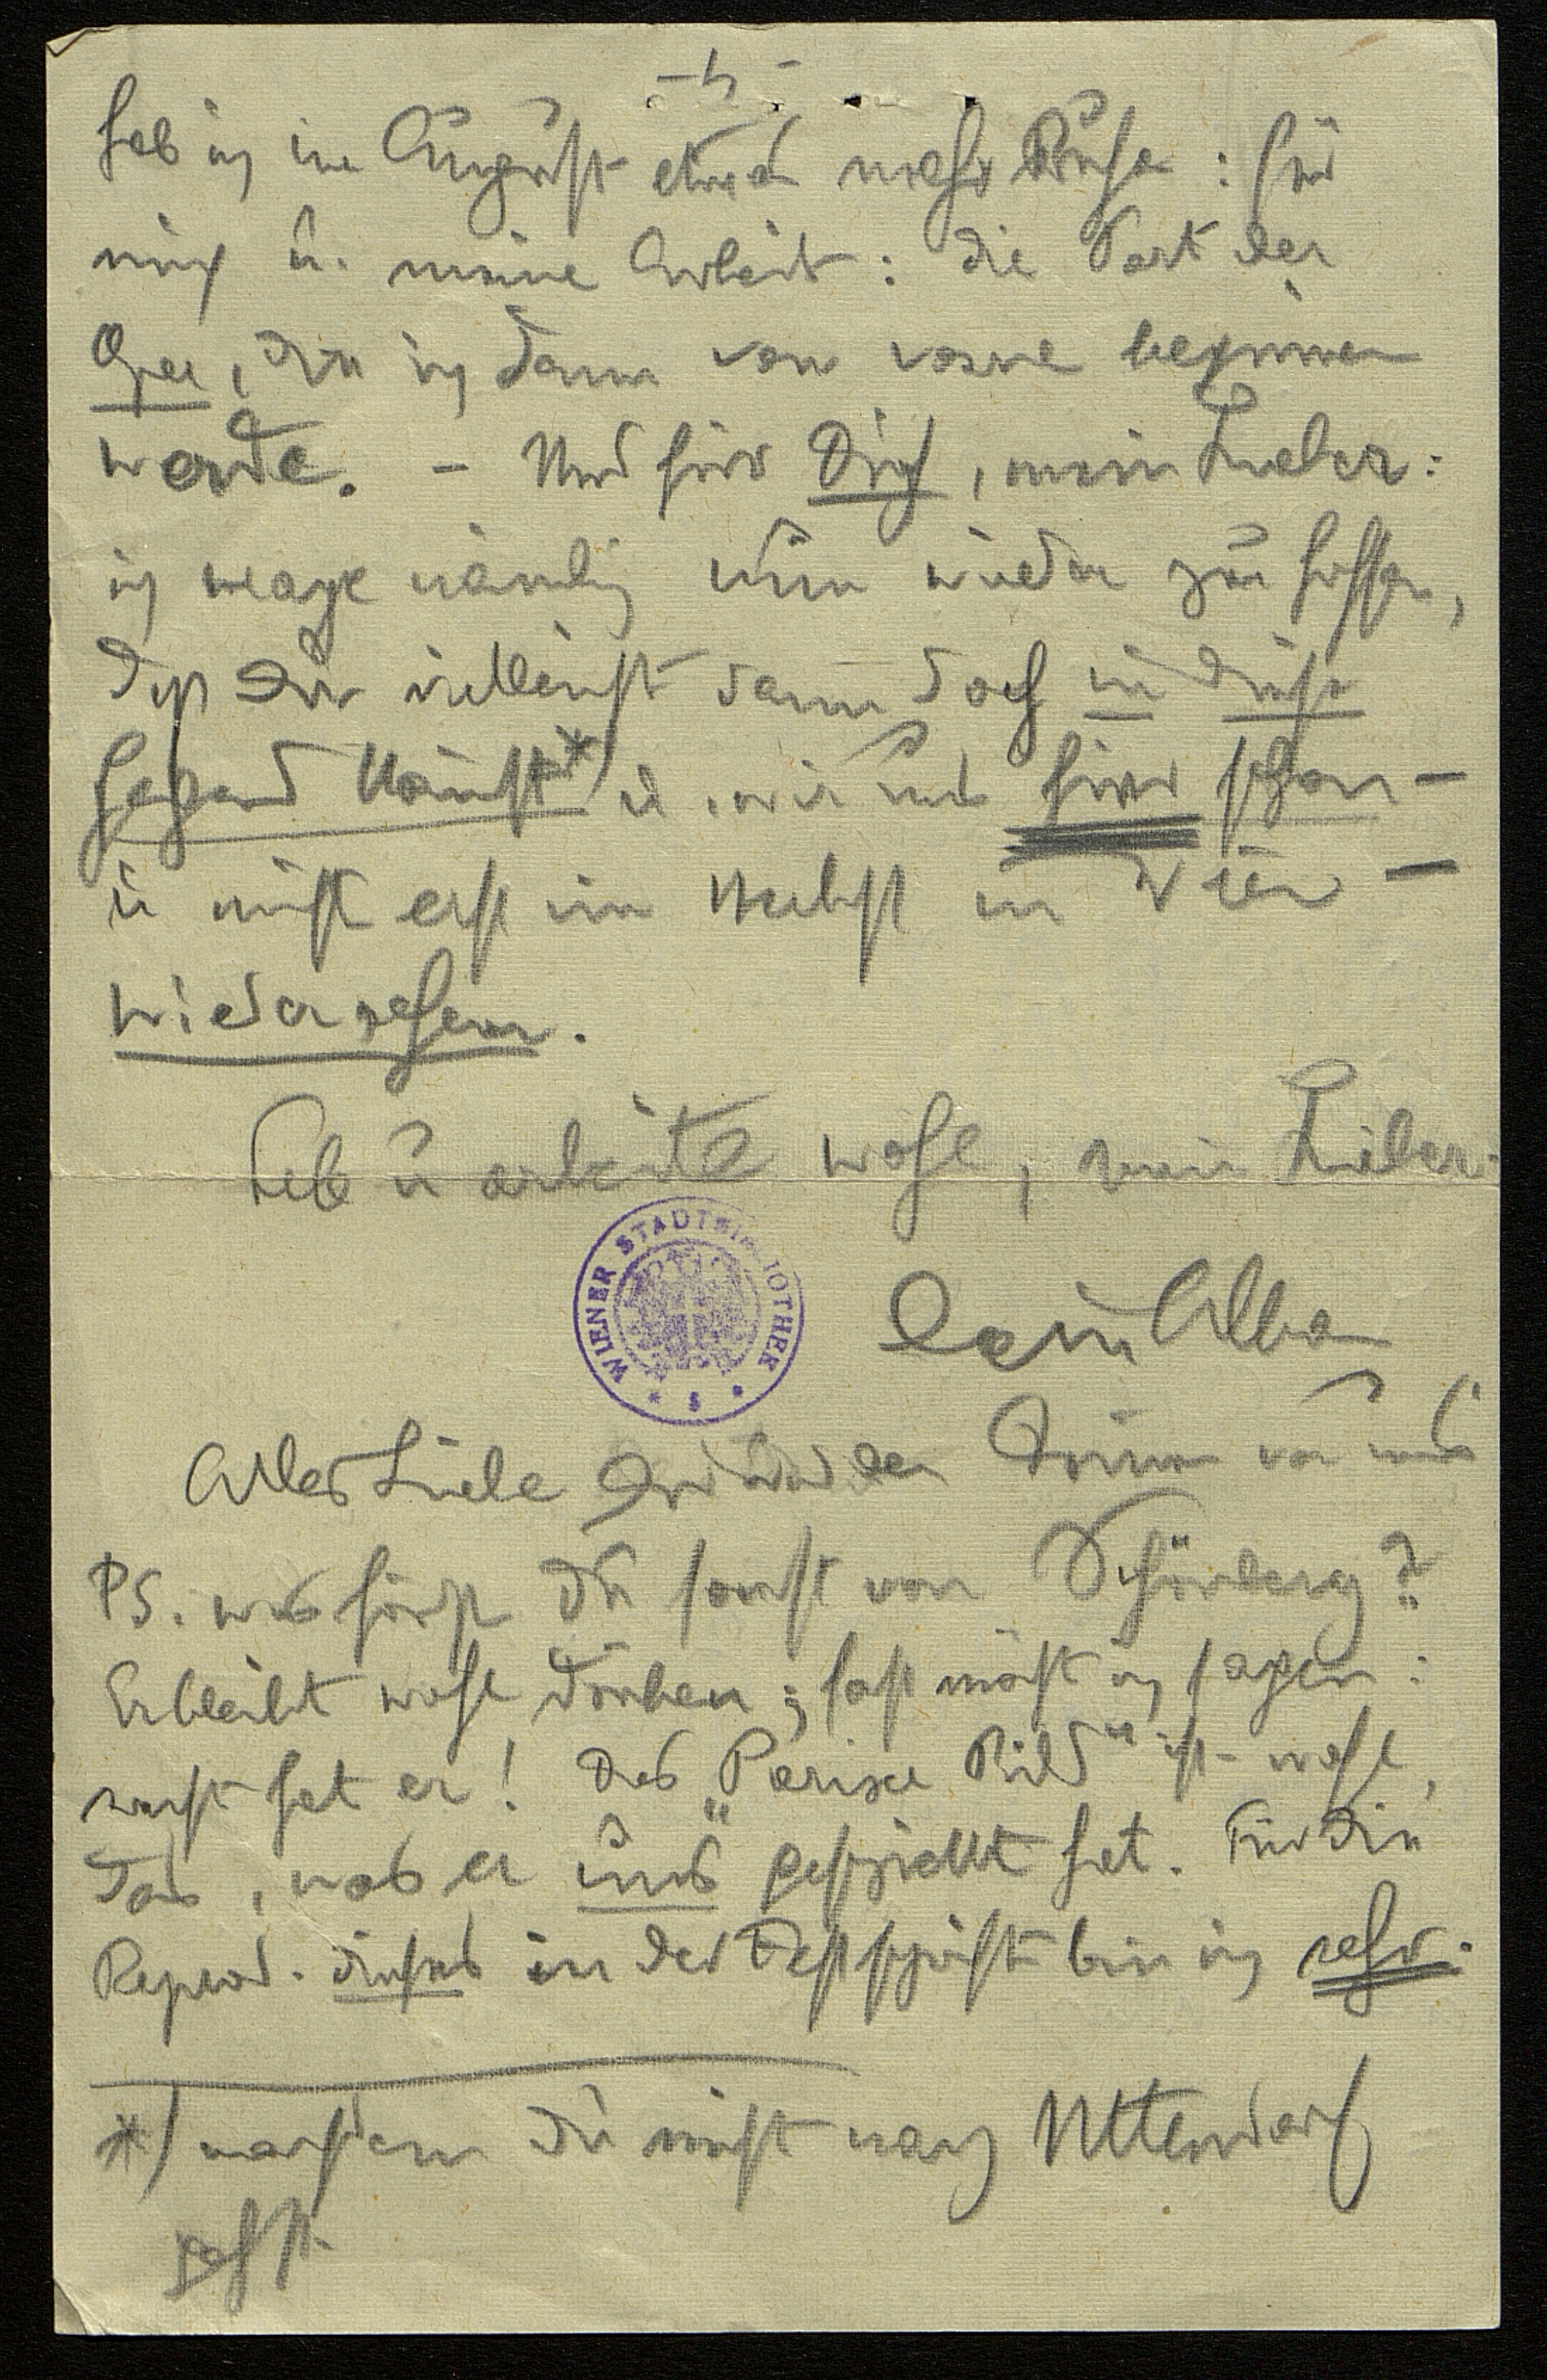 -4-
hab ich im August etwas mehr Ruhe: für
mich u. meine Arbeit: die Part der
Oper, die ich dann von vorne beginnen
werde. – Und für Dich, mein Lieber:
ich wage nämlich nun wieder zu hoffen,
daß Du vielleicht dann doch in diese
Gegend kommst*) u. wir uns hier schon –
u nicht erst im Herbst in Wien –
wiedersehen.
Leb u arbeite wohl, mein Lieber.
Dein Alban
WIENER STADTBIBLIOTHEK
Alles Liebe Dir und der von uns
PS. was hörst Du sonst von Schönberg?
Er bleibt wohl drüben; fast möcht ich sagen:
recht hat er! Das „Pariser Bild" ist wohl
das, was er uns geschickt hat. Für die
Reprod. dieses in der Festschrift bin ich sehr.
*) nachdem Du nicht nach Uttendorf
gehst